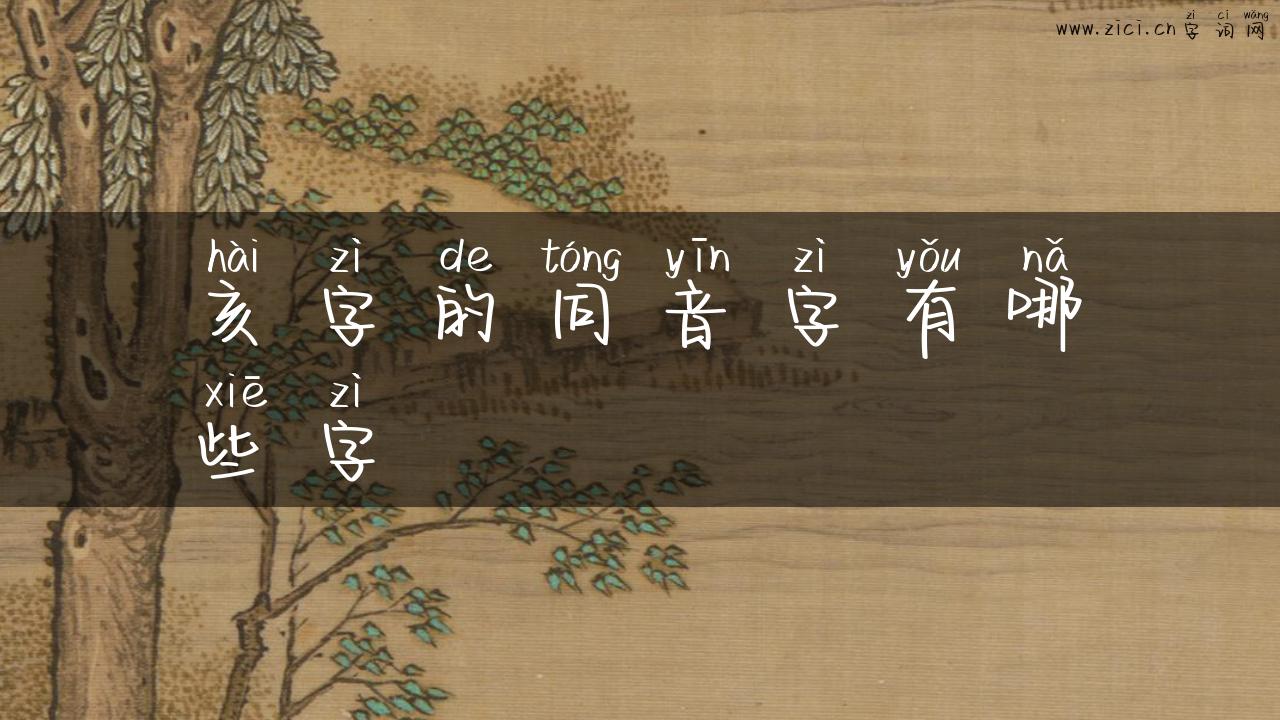 zì cí wǎng
www.zici.cn 字词网
hài zì de tóng yīn zì yǒu nǎ
亥字的同音字有哪
xiē zì
些字